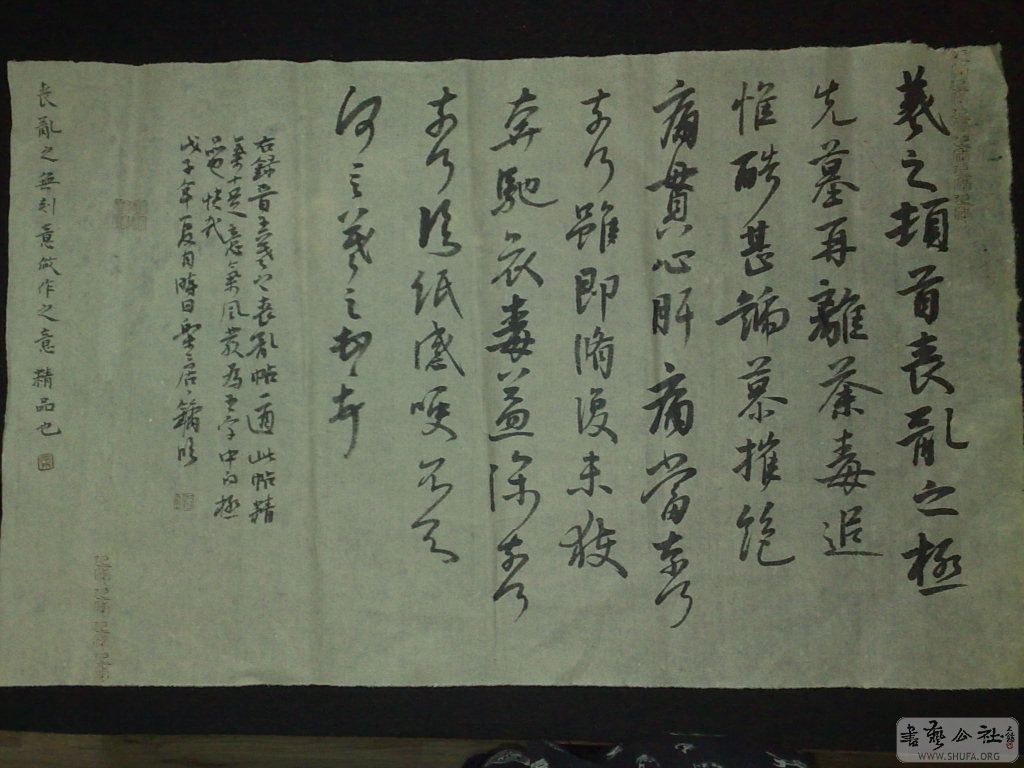 羲之頓首喪亂之極
先墓再離荼毒追
惟酷甚號慕摧絕
痛貫心肝痛當奈何
奈何雖即脩復未獲
奔馳哀毒益深奈何
奈何臨紙感哽不知
何言羲之頓首
右録晉王羲之喪亂帖一通此帖精
氣十足意氣風發為王字中的極
品也快哉
戊子年夏月時日聖居
喪亂之無刻意做作之意精品也
書藝公社
WWW.SHUFA.ORG